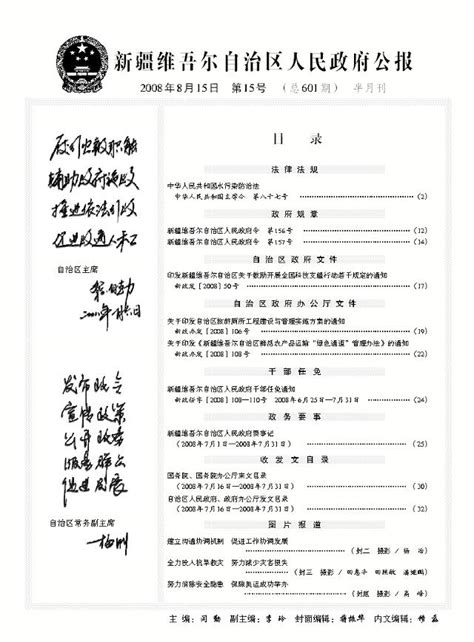 新疆维吾尔自治区人民政府公报
2008年8月15日 第15号 (总601期) 半月刊
目 录
法律法规
中华人民共和国水污染防治法
中华人民共和国主席令 第八十七号 (2)
政府规章
新疆维吾尔自治区人民政府令 第156号 (12)
新疆维吾尔自治区人民政府令 第157号 (14)
自治区政府文件
印发新疆维吾尔自治区关于鼓励开展全国科技支疆行动若干规定的通知
新政发〔2008〕50号 (17)
自治区政府办公厅文件
关于印发自治区旅游厕所工程建设与管理实施方案的通知
新政办发〔2008〕106号 (19)
关于印发《新疆维吾尔自治区鲜活农产品运输“绿色通道”管理办法》的通知
新政办发〔2008〕108号 (22)
干部任免
新疆维吾尔自治区人民政府干部任免通知
新政任字〔2008〕108—110号 2008年6月25日—7月31日 (24)
政务要事
新疆维吾尔自治区人民政府要事记
(2008年7月1日—2008年7月31日) (25)
收发文目录
国务院、国务院办公厅来文目录
(2008年7月16日—2008年7月31日) (30)
自治区人民政府、政府办公厅发文目录
(2008年7月16日—2008年7月31日) (32)
图片报道
建立沟通协调机制 促进工作协调发展
(封二 摄影/ 杨 )
全力投入抗旱救灾 努力减少灾害损失
(封三 摄影/ )
努力消除安全隐患 保障奥运成功举办
(封底 摄影/ 高 )
推进依法行政
促进政通人和
自治区主席
发布政令
宣传政策
公开政务
服务群众
促进发展
自治区常务副主席
主编: 闫勤 副主编: 李玲 封面编辑: 内文编辑: